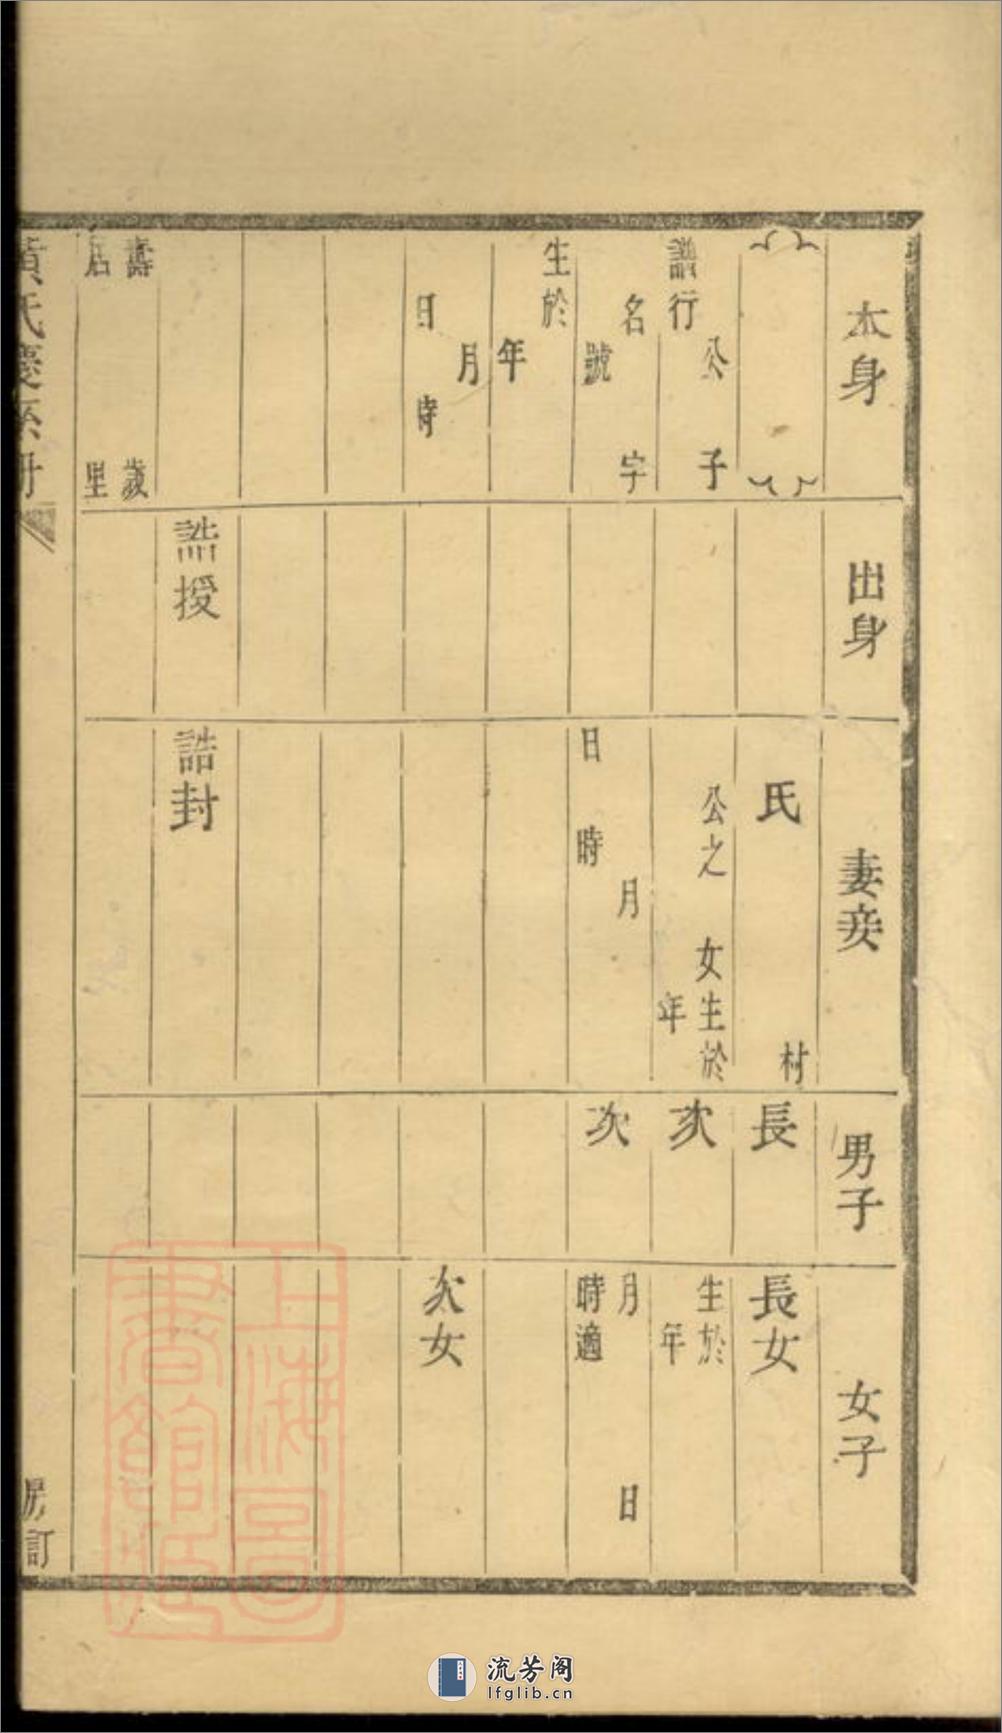 本身
譜行
公子
名字
號
生於
年
月
日時
壽歲
居里
出身
誥授
妻妾
氏
村
公之女生於
年
月
日時
誥封
男子
長
次
次
女子
長女
生於
年
月日
時適
次女
黃氏慶系冊
房訂
上海圖
書館藏
流芳阁
lfglib.cn